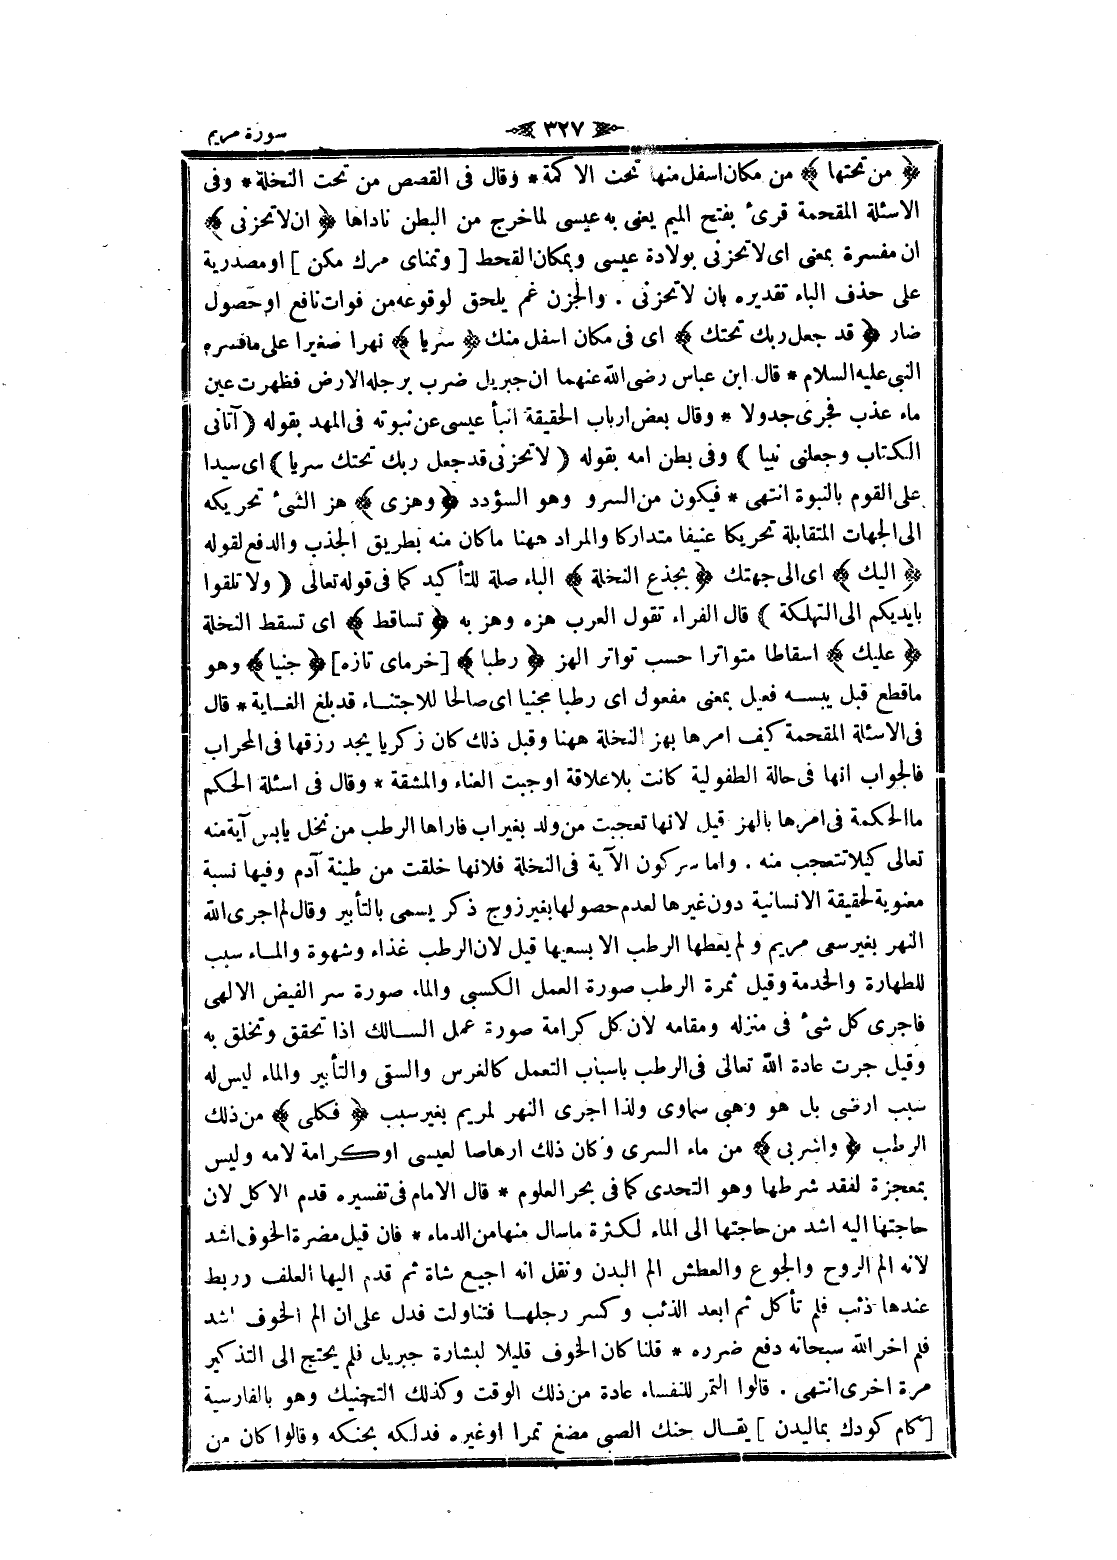 سورة مريم ﴿ ٣٢٧ ﴾
﴿ من تحتها ﴾ من مكان اسفل منها تحت الاكمة * وقال فى القصص من تحت النخلة * وفى
الاسئلة المقحمة قرئ بفتح الميم يعنى به عيسى لما خرج من البطن ناداها ﴿ ان لا تحزنى ﴾
ان مفسرة بمعنى اى لا تحزنى بولادة عيسى وبمكان القحط [ وتمناى مرك مكن ] او مصدرية
على حذف الباء تقديره بان لا تحزنى . والحزن غم يلحق لوقوعه من فوات نافع او حصول
ضار ﴿ قد جعل ربك تحتك ﴾ اى فى مكان اسفل منك ﴿ سريا ﴾ نهرا صغيرا على ما فسره
النبى عليه السلام * قال ابن عباس رضى الله عنهما ان جبريل ضرب برجله الارض فظهرت عين
ماء عذب فجرى جدولا * وقال بعض ارباب الحقيقة انبأ عيسى عن نبوته فى المهد بقوله ( آتانى
الكتاب وجعلنى نبيا ) وفى بطن امه بقوله ( لا تحزنى قد جعل ربك تحتك سريا ) اى سيدا
على القوم بالنبوة انتهى * فيكون من السرو وهو السؤدد ﴿ وهزى ﴾ هز الشئ تحريكه
الى الجهات المتقابلة تحريكا عنيفا متداركا والمراد ههنا ما كان منه بطريق الجذب والدفع لقوله
﴿ اليك ﴾ اى الى جهتك ﴿ بجذع النخلة ﴾ الباء صلة للتأكيد كما فى قوله تعالى ( ولا تلقوا
بايديكم الى التهلكة ) قال الفراء تقول العرب هزه وهز به ﴿ تساقط ﴾ اى تسقط النخلة
﴿ عليك ﴾ اسقاطا متواترا حسب تواتر الهز ﴿ رطبا ﴾ [ خرماى تازه ] ﴿ جنيا ﴾ وهو
ما قطع قبل يبسه فعيل بمعنى مفعول اى رطبا مجنيا اى صالحا للاجتناء قد بلغ الغاية * قال
فى الاسئلة المقحمة كيف امرها بهز النخلة ههنا وقبل ذلك كان زكريا يجد رزقها فى المحراب
فالجواب انها فى حالة الطفولية كانت بلا علاقة اوجبت العناء والمشقة * وقال فى اسئلة الحكم
ما الحكمة فى امرها بالهز قيل لانها تعجبت من ولد بغير اب فاراها الرطب من نخل يابس آية منه
تعالى كيلا تتعجب منه . واما سر كون الآية فى النخلة فلانها خلقت من طينة آدم وفيها نسبة
معنوية لحقيقة الانسانية دون غيرها لعدم حصولها بغير زوج ذكر يسمى بالتأبير وقال لم اجرى الله
النهر بغير سعى مريم ولم يعطها الرطب الا بسعيها قيل لان الرطب غذاء وشهوة والماء سبب
للطهارة والخدمة وقيل ثمرة الرطب صورة العمل الكسبى والماء صورة سر الفيض الالهى
فاجرى كل شئ فى منزله ومقامه لان كل كرامة صورة عمل السالك اذا تحقق وتخلق به
وقيل جرت عادة الله تعالى فى الرطب باسباب التعمل كالغرس والسقى والتأبير والماء ليس له
سبب ارضى بل هو وهبى سماوى ولذا اجرى النهر لمريم بغير سبب ﴿ فكلى ﴾ من ذلك
الرطب ﴿ واشربى ﴾ من ماء السرى وكان ذلك ارهاصا لعيسى او كرامة لامه وليس
بمعجزة لفقد شرطها وهو التحدى كما فى بحر العلوم * قال الامام فى تفسيره قدم الاكل لان
حاجتها اليه اشد من حاجتها الى الماء لكثرة ما سال منها من الدماء * فان قيل مضرة الخوف اشد
لانه الم الروح والجوع والعطش الم البدن ونقل انه اجيع شاة ثم قدم اليها العلف وربط
عندها ذئب فلم تأكل ثم ابعد الذئب وكسر رجلها فتناولت فدل على ان الم الخوف اشد
فلم اخر الله سبحانه دفع ضرره * قلنا كان الخوف قليلا لبشارة جبريل فلم يحتج الى التذكير
مرة اخرى انتهى . قالوا التمر للنفساء عادة من ذلك الوقت وكذلك التحنيك وهو بالفارسية
[ كام كودك بماليدن ] يقال حنك الصبى مضغ تمرا او غيره فدلكه بحنكه وقالوا كان من